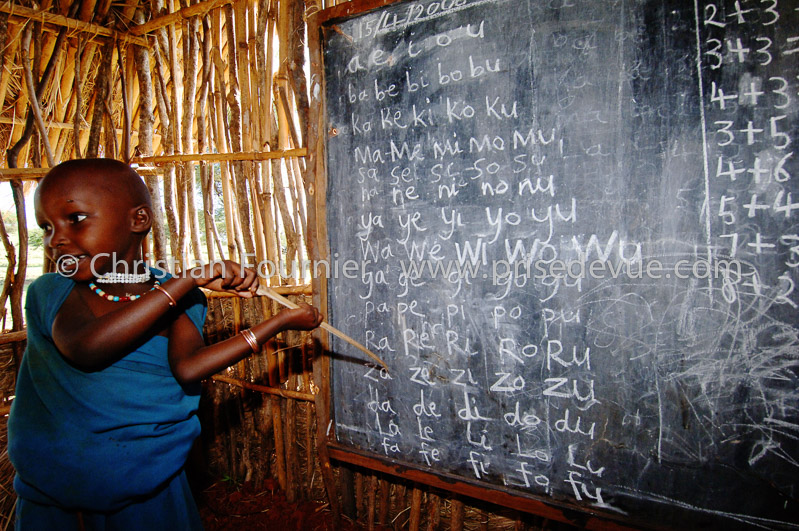 15/4/200
a e i o u
ba be bi bo bu
ka Ke ki Ko Ku
Ma-Me Mi Mo Mu,
sa se si-so su
na ne ni no nu
ya ye yi yo yu
Wa We Wi Wo Wu
ga ge gi go gu
pa pe pi po pu
Ra Re Ri Ro Ru
za ze zi zo zu
da de di do du
La Le Li Lo Lu
fa fe fi fo fu
2+3
3+3=
4+3
3+5
4+6
5+4
7+
8+2
© Christian Fournier - www.prisedevue.com